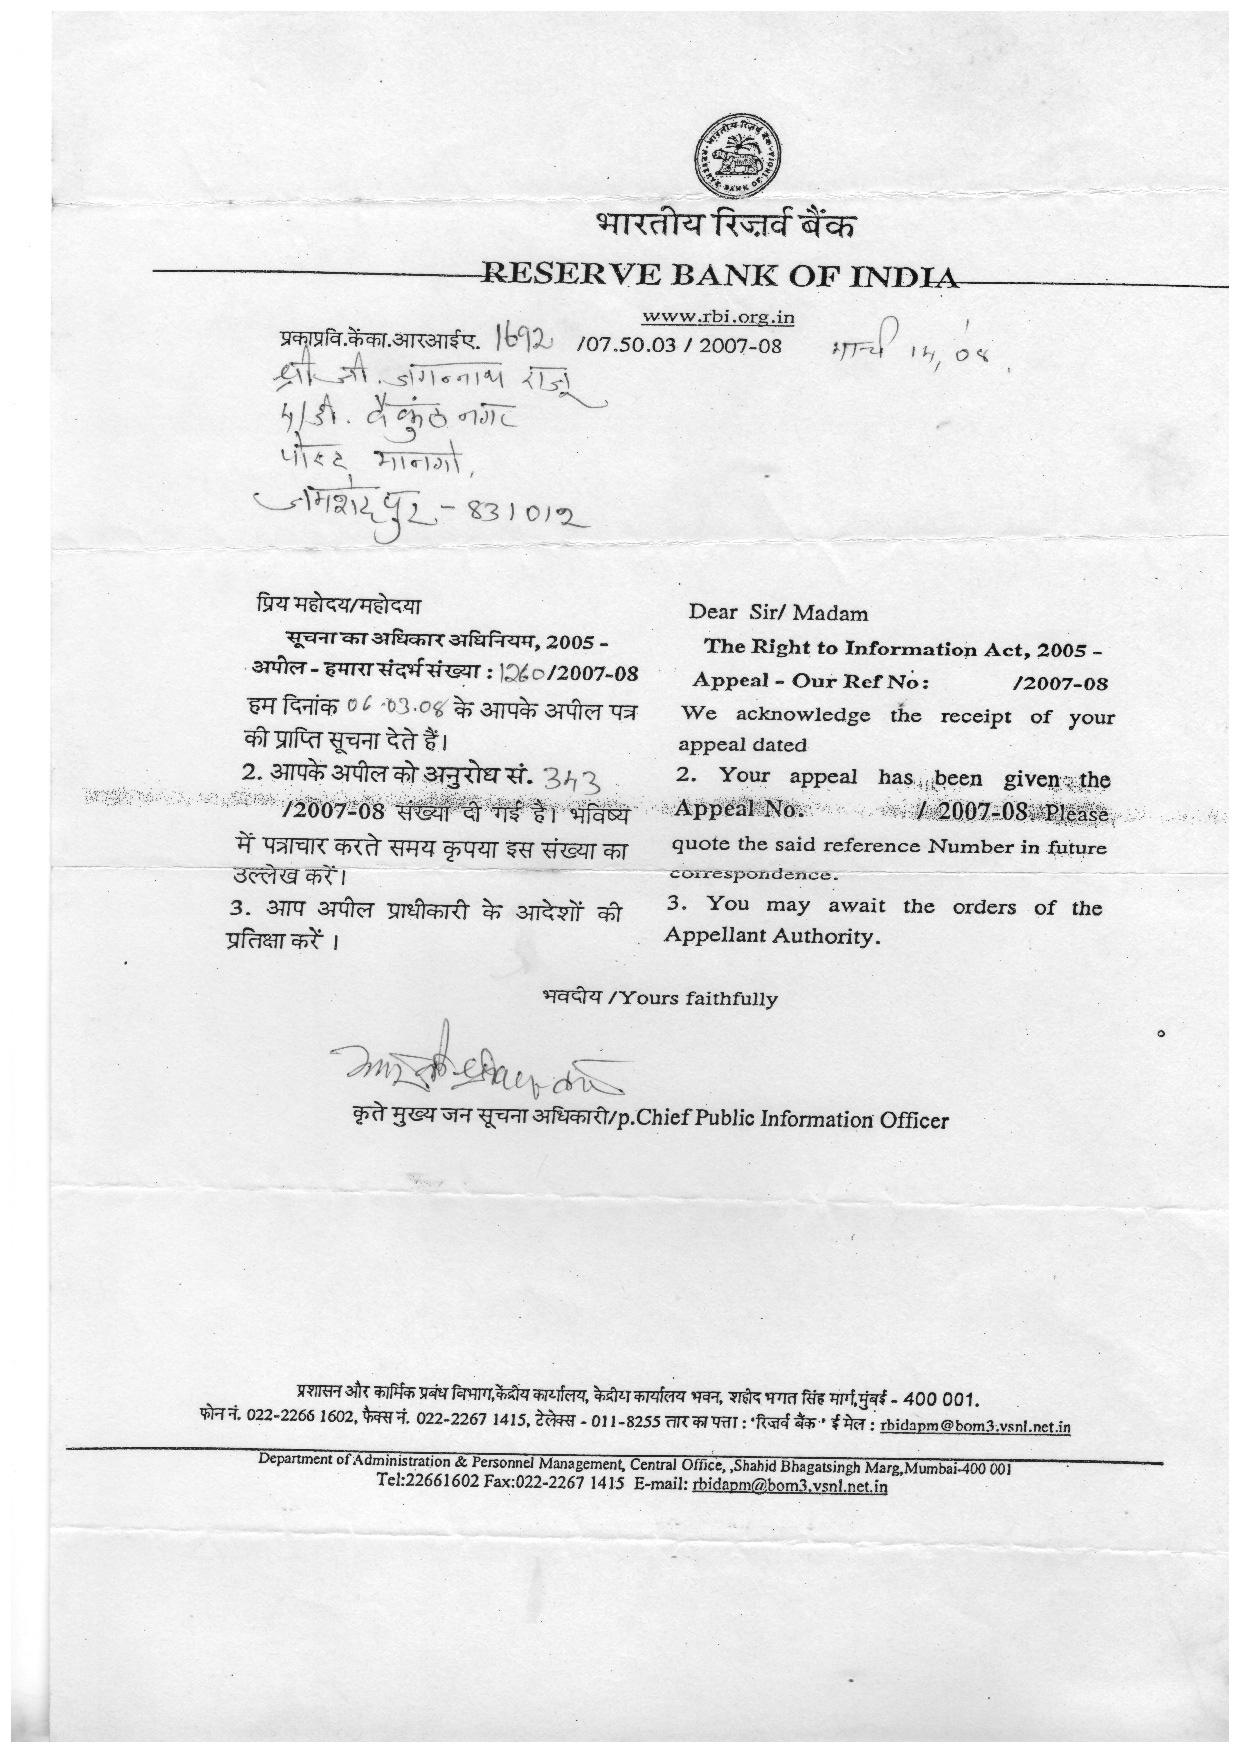 भारतीय रिज़र्व बैंक RESERVE BANK OF INDIA
भारतीय रिज़र्व बैंक
RESERVE BANK OF INDIA
www.rbi.org.in
प्रकाप्रवि.केंका.आरआईए. 1692 /07.50.03 / 2007-08 मार्च 14, 08
श्री जी. जगन्नाथ राजू
5/डी. वैकुंठ नगर
पोस्ट मानगो,
जमशेदपुर - 831012
प्रिय महोदय/महोदया
सूचना का अधिकार अधिनियम, 2005 -
अपील - हमारा संदर्भ संख्या : 1260/2007-08
हम दिनांक 06.03.08 के आपके अपील पत्र
की प्राप्ति सूचना देते हैं।
2. आपके अपील को अनुरोध सं. 343
/2007-08 संख्या दी गई है। भविष्य
में पत्राचार करते समय कृपया इस संख्या का
उल्लेख करें।
3. आप अपील प्राधीकारी के आदेशों की
प्रतिक्षा करें ।
Dear Sir/ Madam
The Right to Information Act, 2005 -
Appeal - Our Ref No: /2007-08
We acknowledge the receipt of your
appeal dated
2. Your appeal has been given the
Appeal No. / 2007-08. Please
quote the said reference Number in future
correspondence.
3. You may await the orders of the
Appellant Authority.
भवदीय /Yours faithfully
कृते मुख्य जन सूचना अधिकारी/p.Chief Public Information Officer
प्रशासन और कार्मिक प्रबंध विभाग,केंद्रीय कार्यालय, केंद्रीय कार्यालय भवन, शहीद भगत सिंह मार्ग,मुंबई - 400 001.
फोन नं. 022-2266 1602, फैक्स नं. 022-2267 1415, टेलेक्स - 011-8255 तार का पत्ता : 'रिजर्व बैंक' ई मेल : rbidapm@bom3.vsnl.net.in
Department of Administration & Personnel Management, Central Office, ,Shahid Bhagatsingh Marg,Mumbai-400 001
Tel:22661602 Fax:022-2267 1415 E-mail: rbidapm@bom3.vsnl.net.in